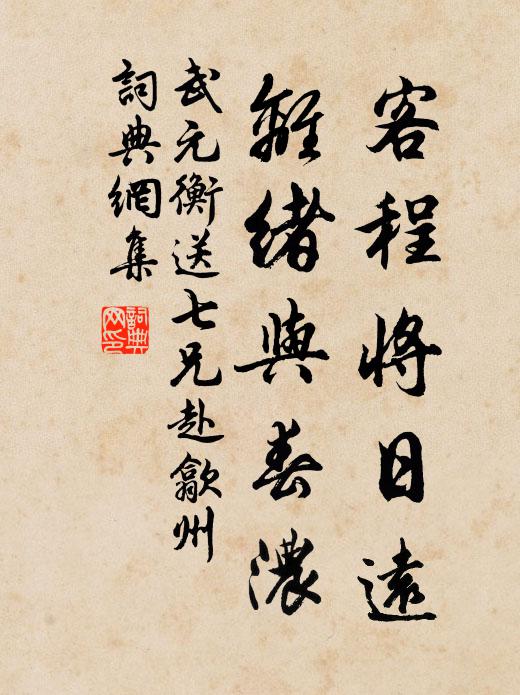 客程將日遠
離緒與春濃
武元衡送七兄赴歙州
詞典網集
詞典网印